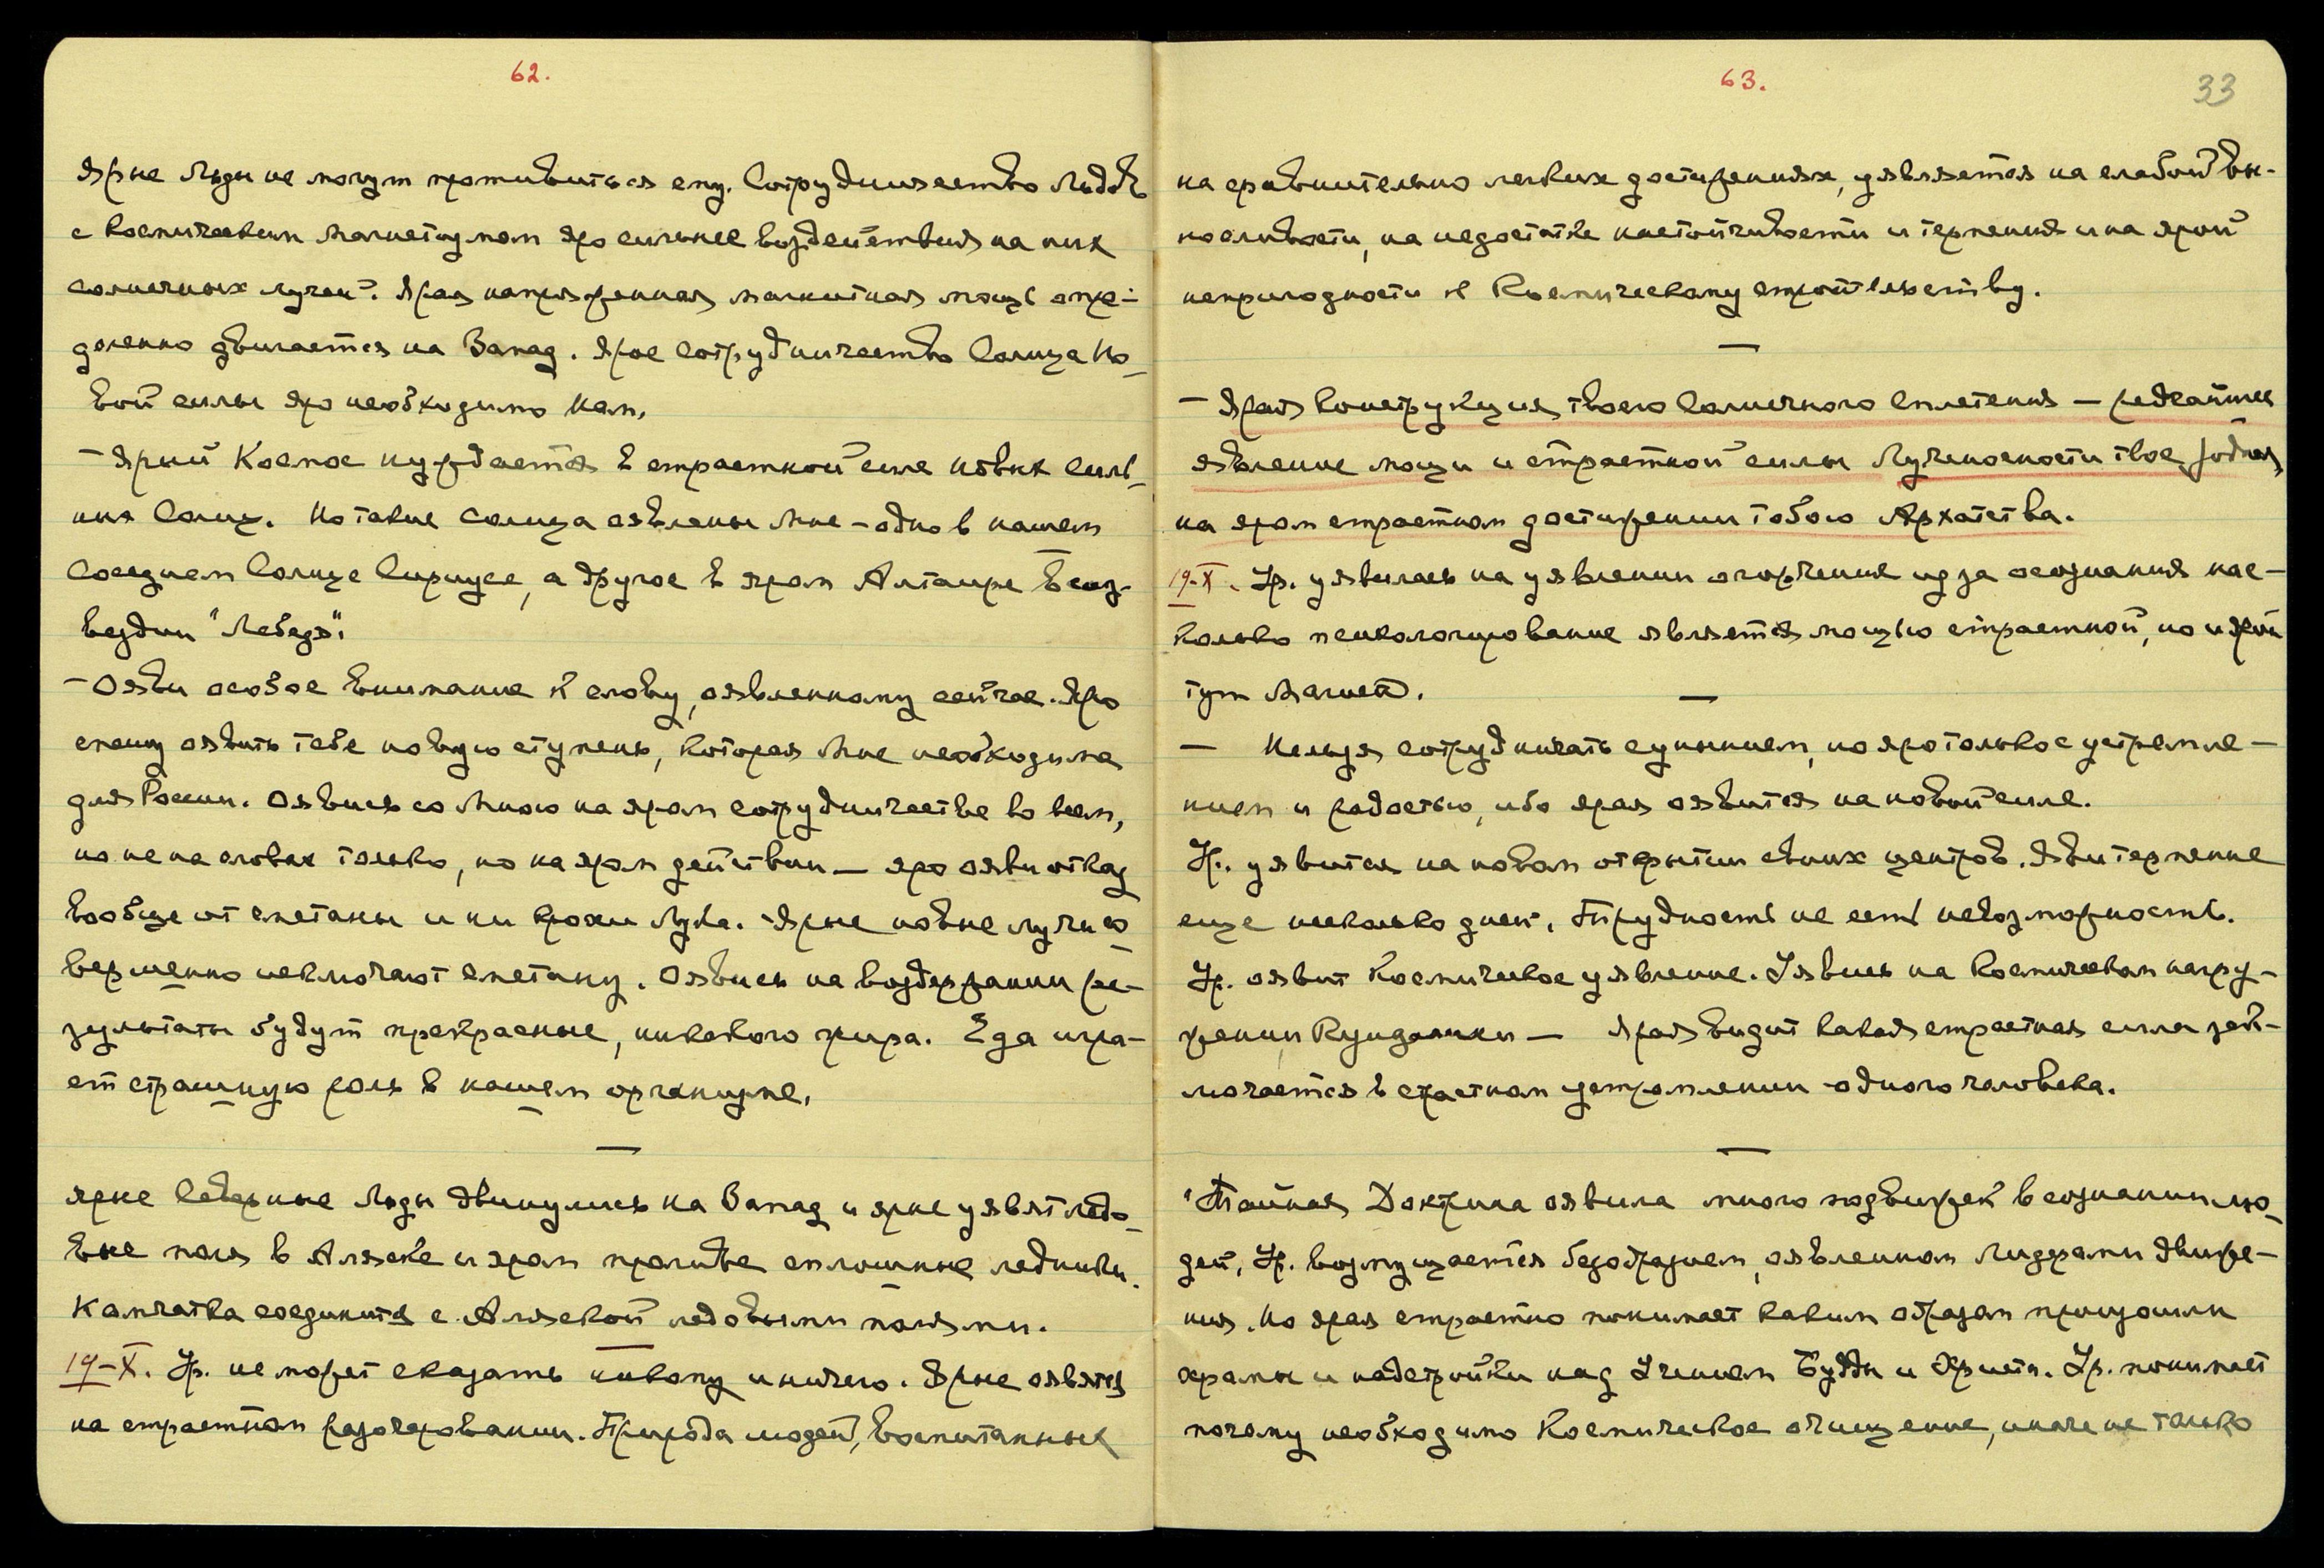 62.
Ярые Льды не могут противиться ему. Сотрудничество Льдов
с Космическим Магнетизмом яро сильнее воздействия на них
солнечных лучей. Ярая напряженная магнитная мощь опре-
деленно двигается на Запад. Ярое сотрудничество Солнца Но-
вой силы яро необходимо Нам.
– Ярый Космос нуждается в страстной силе новых силь-
ных Солнц. Но такие солнца явлены Мне – одно в нашем
соседнем Солнце Сириусе, а другое в яром Альтаире в соз-
вездии "Лебедя".
– Ояви особое внимание к слову, оявленному сейчас. Яро
спешу оявить тебе новую ступень, которая Мне необходима
для России. Оявись со Мною на яром сотрудничестве во всем,
но не на словах только, но на яром действии – яро ояви отказ
вообще от сметаны и ни крохи Лука. Ярые новые лучи со-
вершенно исключают сметану. Оявись на воздержании ре-
зультаты будут прекрасные, никакого жира. Еда игра-
ет страшную роль в нашем организме.
—
ярые Северные Льды двинулись на Запад и ярые уявят ледо-
вые поля в Аляске и яром проливе сплошные ледники.
Камчатка соединится с Аляской ледовыми полями.
19–X. Ур. не может сказать никому и ничего. Ярые оявятся
на страстном разочаровании. Природа людей, воспитанных
63.
33
на сравнительно легких достижениях, уявляется на слабой вы-
носливости, на недостатке настойчивости и терпения и на ярой
непригодности к Космическому строительству.
—
– Ярая конструкция твоего Солнечного сплетения – редчайшее
явление мощи и страстной силы Лученосности твоей, родная,
на яром страстном достижении тобою Архатства.
19–X. Ур. уявилась на уявлении огорчения из за осознания нас-
колько психологирование является мощью страстной, но и ярой
тут Магнит.
—
– Нельзя сотрудничать с унынием, но яро только с устремле-
нием и радостью, ибо ярая оявится на новой силе.
Ур. уявится на новом открытии своих центров. Яви терпение
еще несколько дней. Трудность не есть невозможность.
Ур. оявит Космическое уявление. Уявись на Космическом напря-
жении Кундалини – Ярая видит какая страстная сила зак-
лючается в страстном устремлении одного человека.
—
"Тайная Доктрина оявила много подвижек в сознании лю-
дей, Ур. возмущается безобразием, оявленном Лидерами движе-
ния. Но ярая страстно понимает каким образом произошли
храмы и надстройки над Учением Будды и Христа. Ур. понимает
почему необходимо Космическое очищение, иначе не только